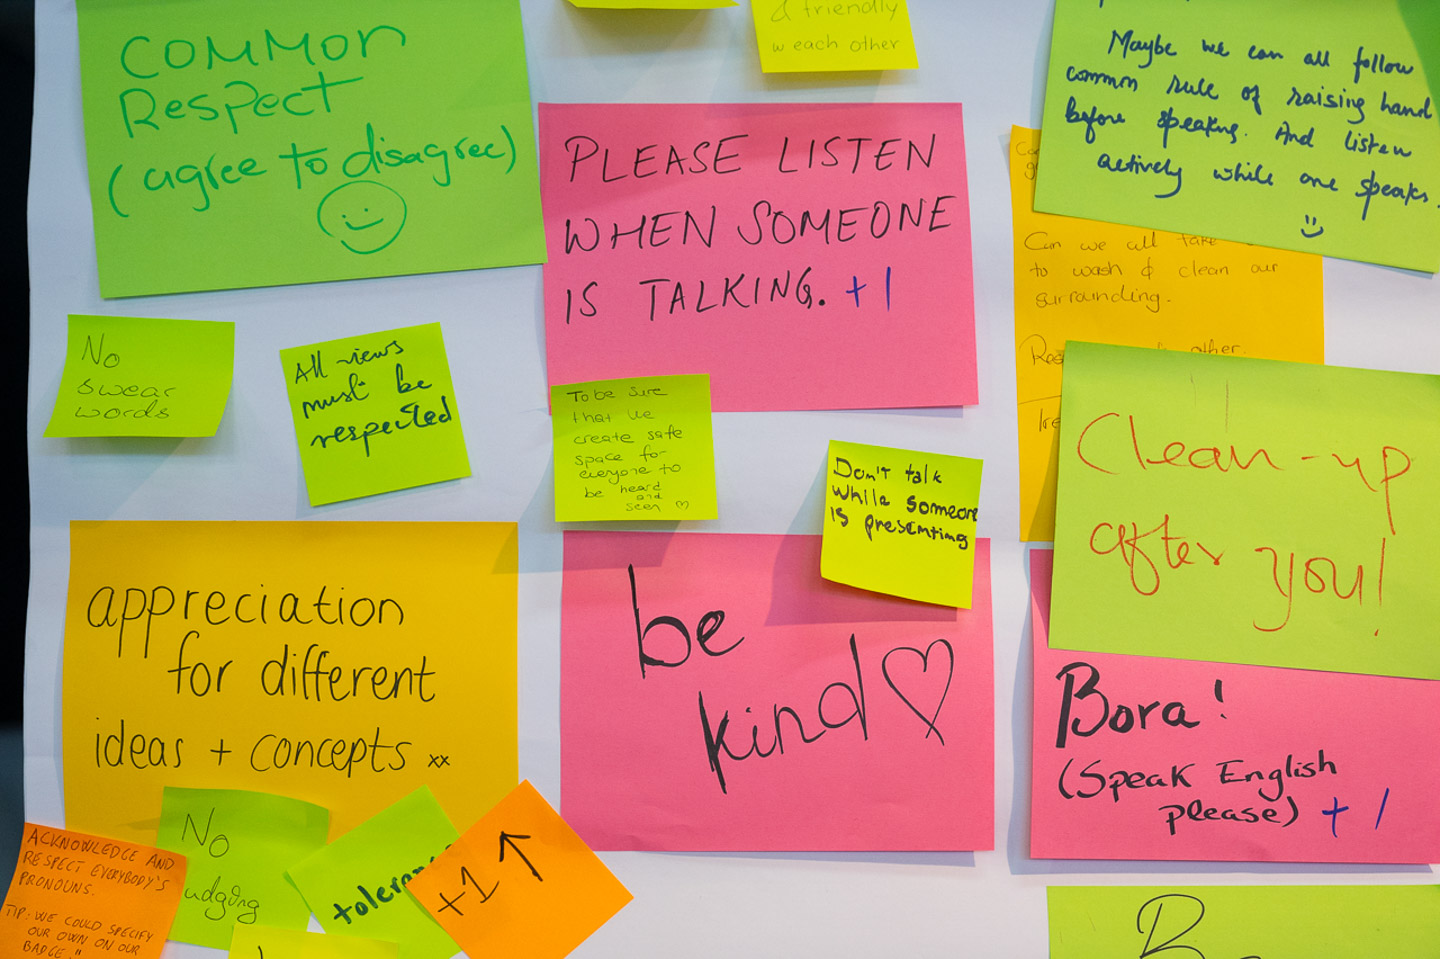 COMMON
Respect
(agree to disagree)
& friendly
w each other
Maybe we can all follow
common rule of raising hand
before speaking. And listen
actively while one speaks.
PLEASE LISTEN
WHEN SOMEONE
IS TALKING. +1
Can we all take
to wash & clean our
surrounding.
other.
No
swear
words
All views
must be
respected
To be sure
that we
create safe
space for
everyone to
be heard
and
seen ♡
Don't talk
while someone
is presenting
Clean-up
after you!
appreciation
for different
ideas + concepts xx
be
kind ♡
Bora!
(Speak English
please) +1
ACKNOWLEDGE AND
RESPECT EVERYBODY'S
PRONOUNS.
TIP: WE COULD SPECIFY
OUR OWN ON OUR
BADGE."
No
udging
toleran
+1 ↑